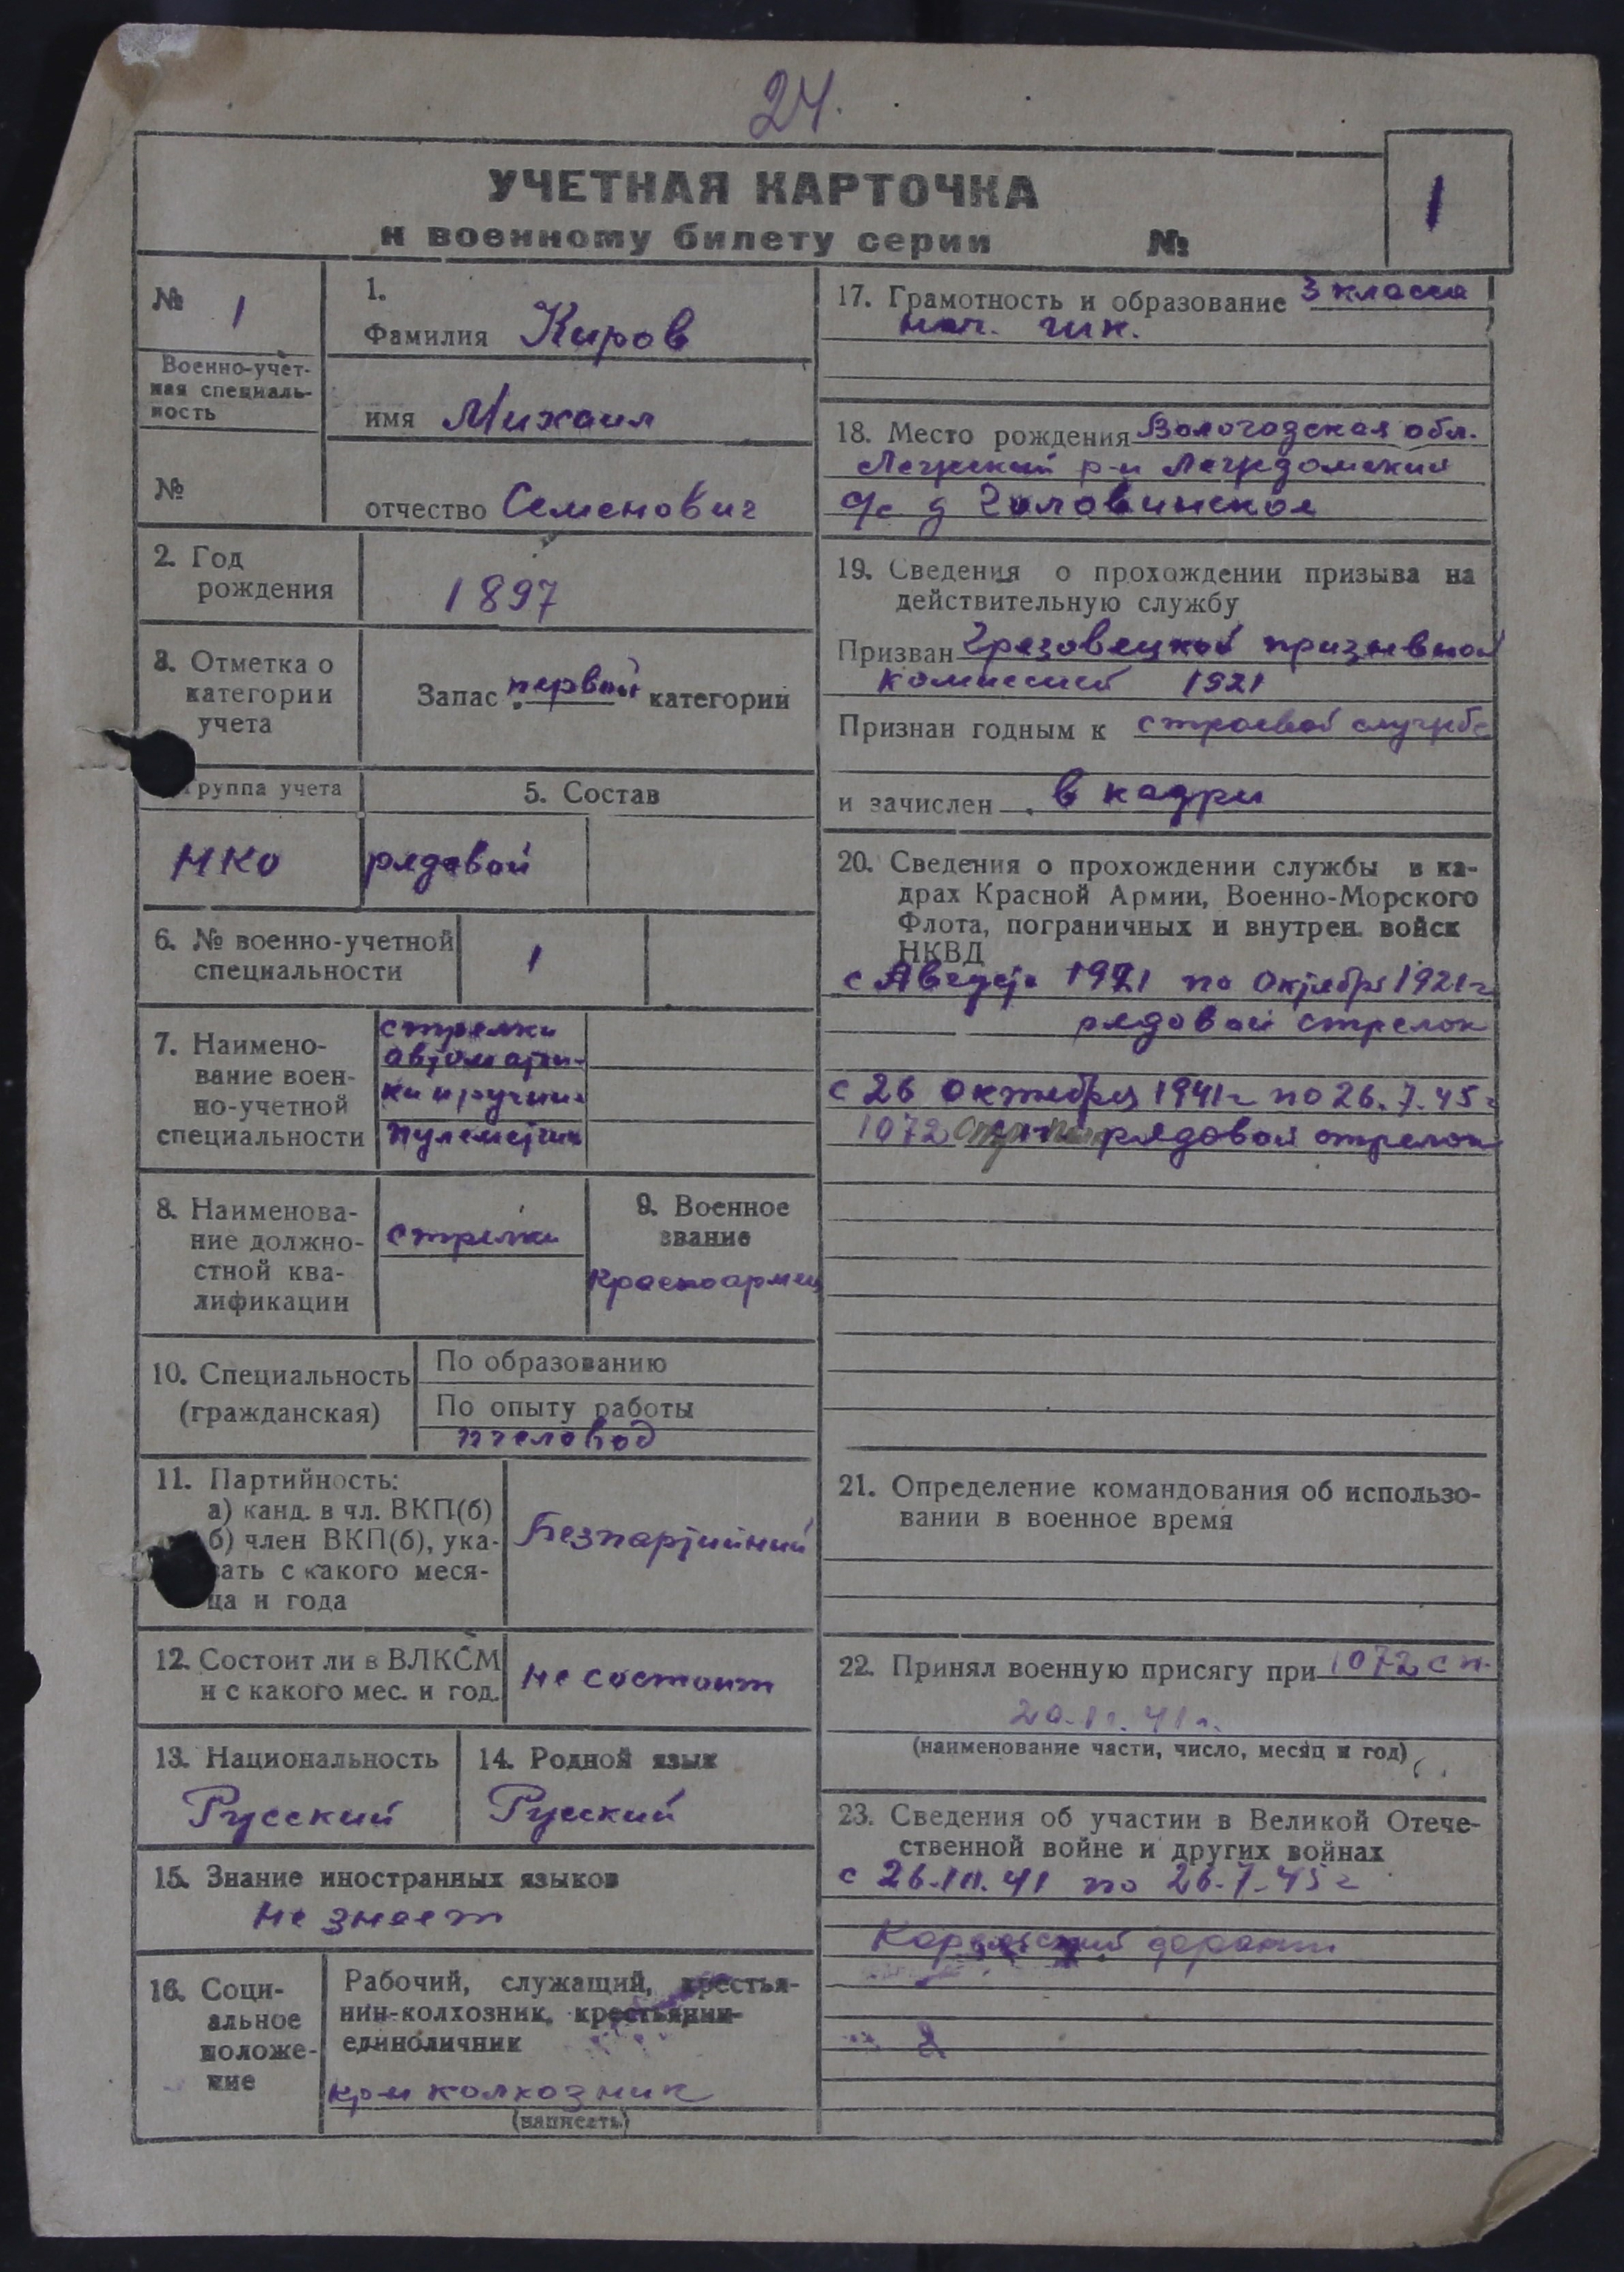 24.
УЧЕТНАЯ КАРТОЧКА
к военному билету серии №
1
№ 1
Военно-учет-
ная специаль-
ность
№
1.
Фамилия Киров
имя Михаил
отчество Семенович
2. Год
рождения
1897
3. Отметка о
категории
учета
Запас первой категории
группа учета
5. Состав
НКО
рядовой
6. № военно-учетной
специальности
1
7. Наимено-
вание воен-
но-учетной
специальности
стрелки
автоматчи-
ки и ручни-
пулеметчик
8. Наименова-
ние должно-
стной ква-
лификации
стрелки
9. Военное
звание
красноармеец
10. Специальность
(гражданская)
По образованию
По опыту работы
пчеловод
11. Партийность:
а) канд. в чл. ВКП(б)
б) член ВКП(б), ука-
зать с какого меся-
ца и года
Безпартийний
12. Состоит ли в ВЛКСМ
и с какого мес. и год.
не состоит
13. Национальность
Русский
14. Родной язык
Русский
15. Знание иностранных языков
не знает
16. Соци-
альное
положе-
ние
Рабочий, служащий, крестья-
нин-колхозник, крестьянин-
единоличник
кр-н колхозник
(написать)
17. Грамотность и образование 3 класса
нач. шк.
18. Место рождения Вологодская обл.
р-н
с/с д Головинское
19. Сведения о прохождении призыва на
действительную службу
Призван Грязовецкой призывной
комиссией 1921
Признан годным к строевой службе
и зачислен в кадры
20. Сведения о прохождении службы в ка-
драх Красной Армии, Военно-Морского
Флота, пограничных и внутрен. войск
НКВД
с Августа 1921 по Октябрь 1921 г
рядовой стрелок
с 26 октября 1941 г по 26.7.45 г
1072 рядовой стрелок
21. Определение командования об использо-
вании в военное время
22. Принял военную присягу при 1072 сп.
20.11.41 г.
(наименование части, число, месяц и год)
23. Сведения об участии в Великой Отече-
ственной войне и других войнах
с 26.10.41 по 26.7.45 г
Карельский
2